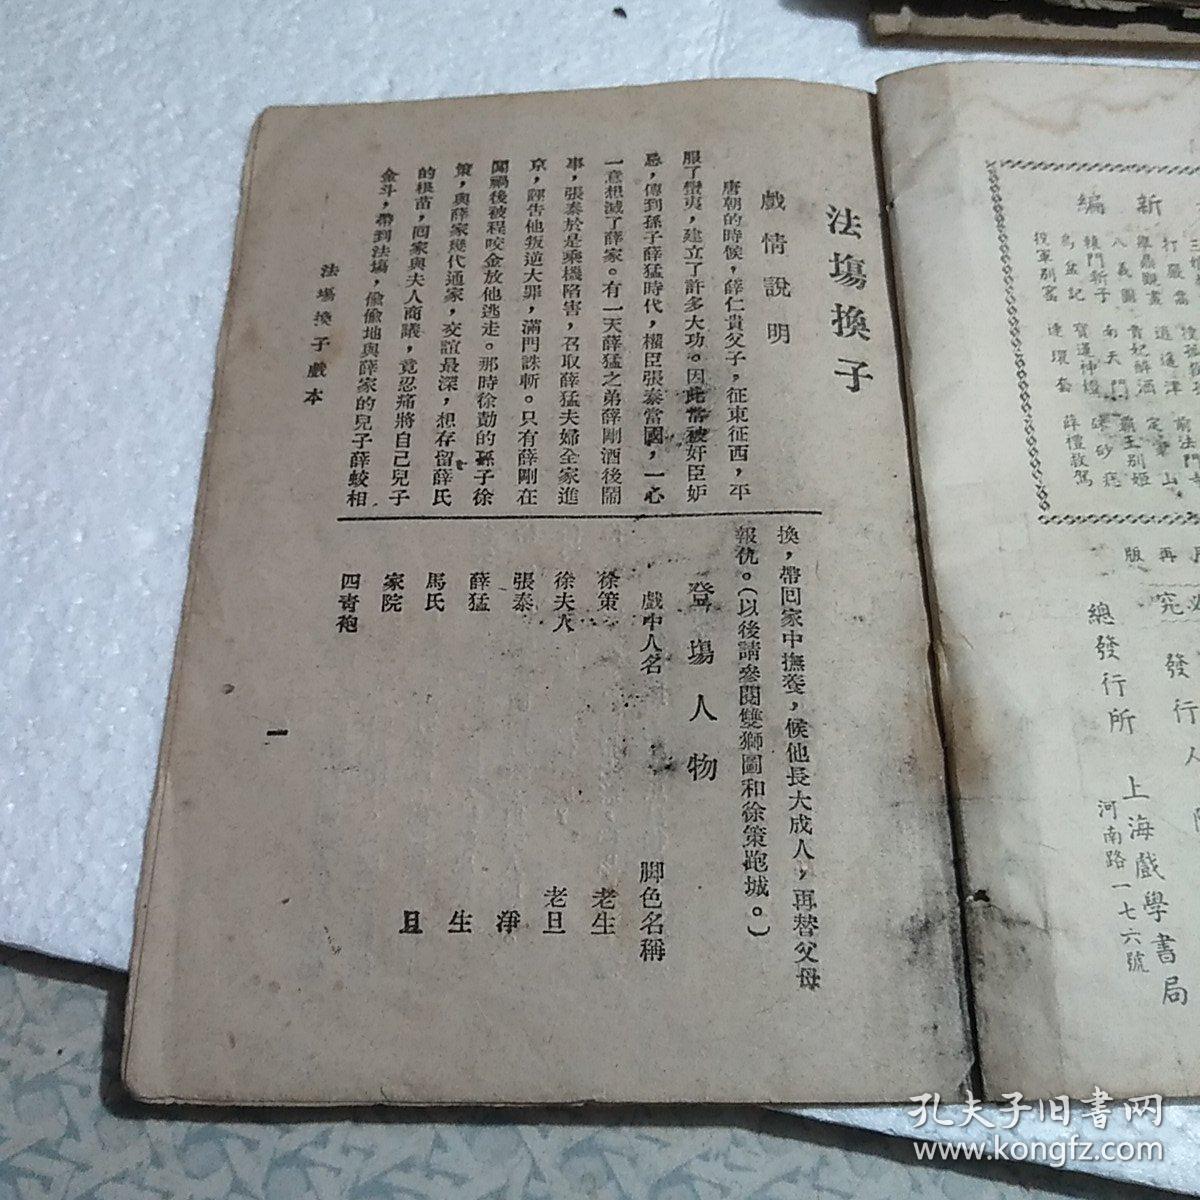 法塲換子
戲情說明
唐朝的時候，薛仁貴父子，征東征西，平
服了蠻夷，建立了許多大功。因此常被奸臣妒
忌，傳到孫子薛猛時代，權臣張泰當國，一心
一意想滅了薛家。有一天薛猛之弟薛剛酒後鬧
事，張泰於是乘機陷害，召取薛猛夫婦全家進
京，誣告他叛逆大罪，滿門誅斬。只有薛剛在
闖禍後被程咬金放他逃走。那時徐勣的孫子徐
策，與薛家幾代通家，交誼最深，想存留薛氏
的根苗，回家與夫人商議，竟忍痛將自己兒子
金斗，帶到法塲，偷偷地與薛家的兒子薛蛟相
換，帶回家中撫養，候他長大成人，再替父母
報仇。（以後請參閱雙獅圖和徐策跑城。）
登塲人物
戲中人名 脚色名稱
徐策 老生
徐夫人 老旦
張泰 淨
薛猛 生
馬氏 旦
家院
四青袍
法塲換子戲本
一
新編
打嚴嵩
八義圖
轅門斬子
烏盆記
投軍別窰
逍遙津
貴妃醉酒
南天門
連環套
定軍山
霸王別姬
硃砂痣
薛禮救駕
再版
發行人
總發行所 上海戲學書局
河南路一七六號
孔夫子旧书网
www.kongfz.com